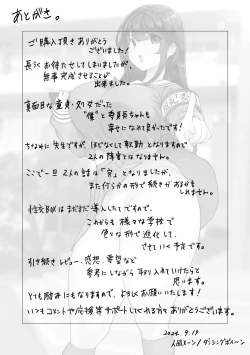 あとがき。
ご購入頂きありがとう
ございました！
長らくお待たせしてしまいましたが、
無事完成させることが
出来ました。
真面目な童貞・処女だった
"僕"と委員長ちゃんも
幸せになれて良かったです！
ちなみに先生ですが、ほどなくして転勤となりますので
2人の障害とはなりません。
ここで一旦2人の話は「完」となりましたが、
また何らかの形で続きがあるかも
しれません。
まだまだ導入したてですので、
これからも様々な学校で
色々な形で進化して
させていく予定です。
引き続きレビュー・感想・要望など
参考にしながら取り入れていけたらと
思います。
とても励みになりますので、よろしくお願いいたします！
いつもコメントや応援、サポートしてくれる方々ありがとうございます。
2024.9.19